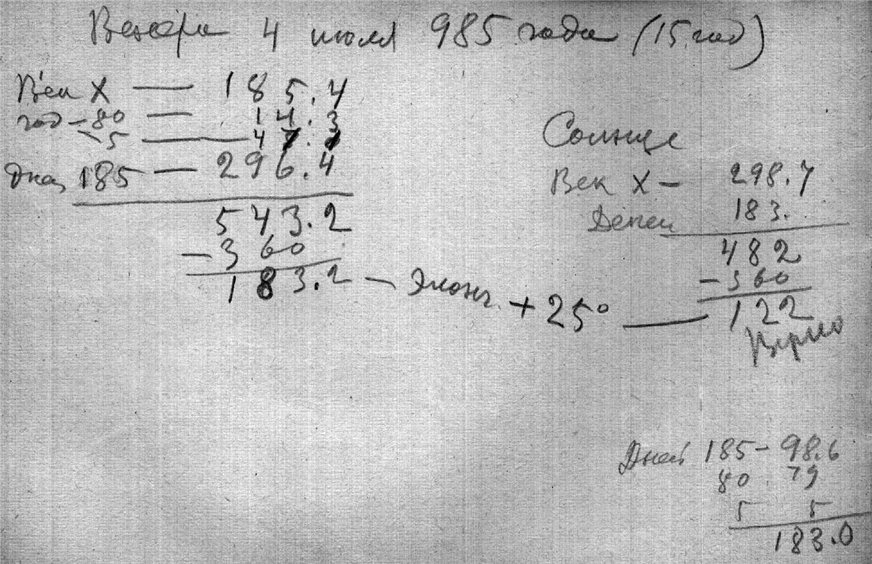 Венера 4 июля 985 года (15 год)
Век X — 185.4
год — 80 — 14.3
— 5 — 47.
дней 185 — 296.4
543.2
— 360
183.2 — Элонг. + 25° — 122
Солнце
Век X — 298.7
Дней 183.
482
— 360
Верно
Дней 185 — 98.6
80 79
5 5
183.0